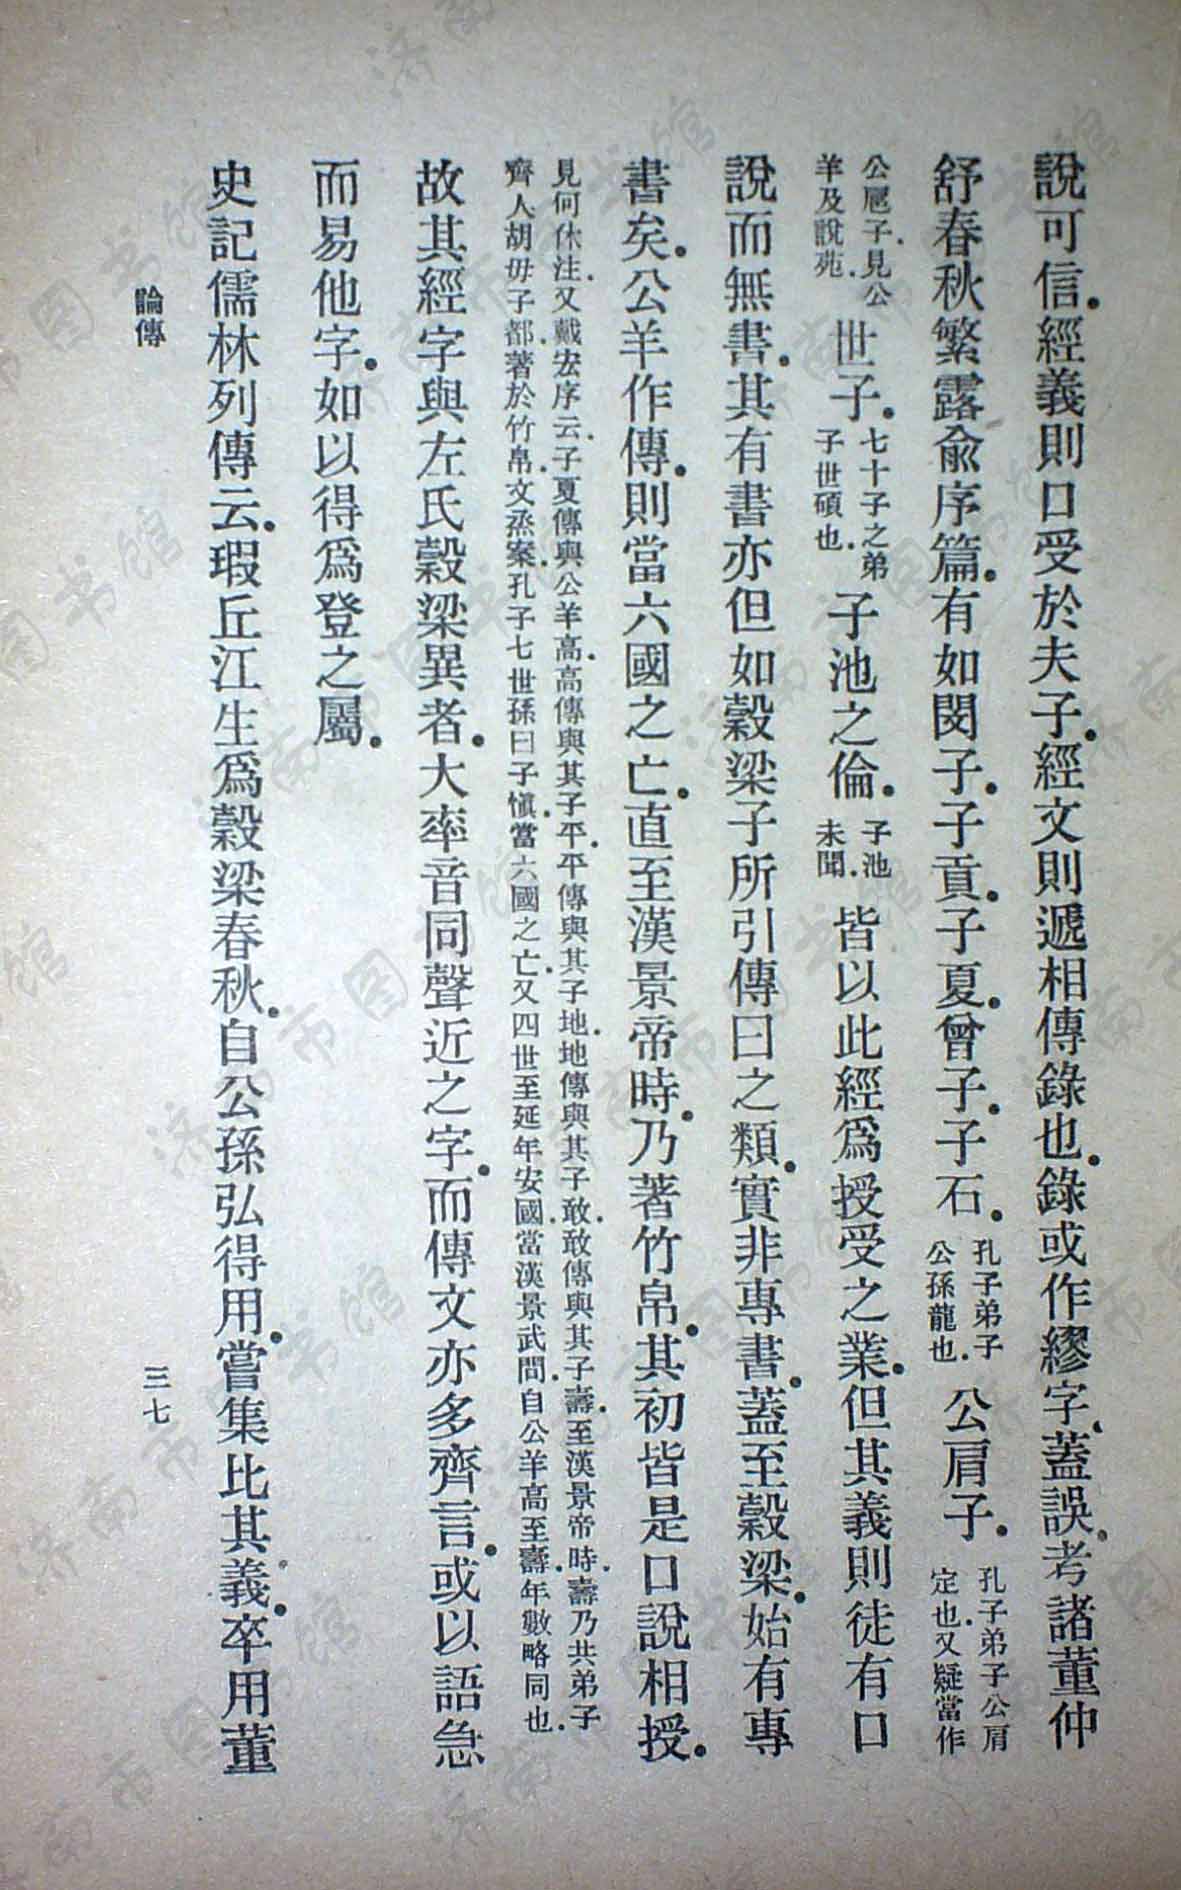 說可信.經義則口受於夫子.經文則遞相傳錄也.錄或作繆字.蓋誤.考諸董仲
舒春秋繁露俞序篇.有如閔子.子貢.子夏.曾子.子石.孔子弟子公孫龍也.公肩子.孔子弟子公肩定也.又疑當作
公扈子.見公羊及說苑.世子.七十子之弟子世碩也.子池之倫.子池未聞.皆以此經爲授受之業.但其義則徒有口
說而無書.其有書亦但如穀梁子所引傳曰之類.實非專書.蓋至穀梁.始有專
書矣.公羊作傳.則當六國之亡.直至漢景帝時.乃著竹帛.其初皆是口說相授.
見何休注.又戴宏序云.子夏傳與公羊高.高傳與其子平.平傳與其子地.地傳與其子敢.敢傳與其子壽.至漢景帝時.壽乃共弟子
齊人胡毋子都.著於竹帛.文烝案.孔子七世孫曰子愼.當六國之亡.又四世至延年安國.當漢景武間.自公羊高至壽.年數略同也.
故其經字與左氏穀梁異者.大率音同聲近之字.而傳文亦多齊言.或以語急
而易他字.如以得爲登之屬.
史記儒林列傳云.瑕丘江生爲穀梁春秋.自公孫弘得用.嘗集比其義.卒用董
論傳
三七
济南市图书馆